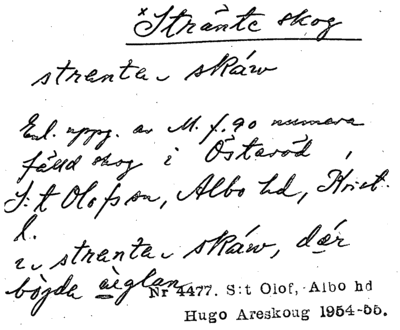 *Strånte skog
stranta skáw
Enl. uppg. av M. f. 90 numera
fälld skog i Österöd,
S:t Olofs sn, Albo hd, Krist.
l.
i stranta skáw, där
böjda æiglan
Nr 4477. S:t Olof, Albo hd
Hugo Areskoug 1954-55.